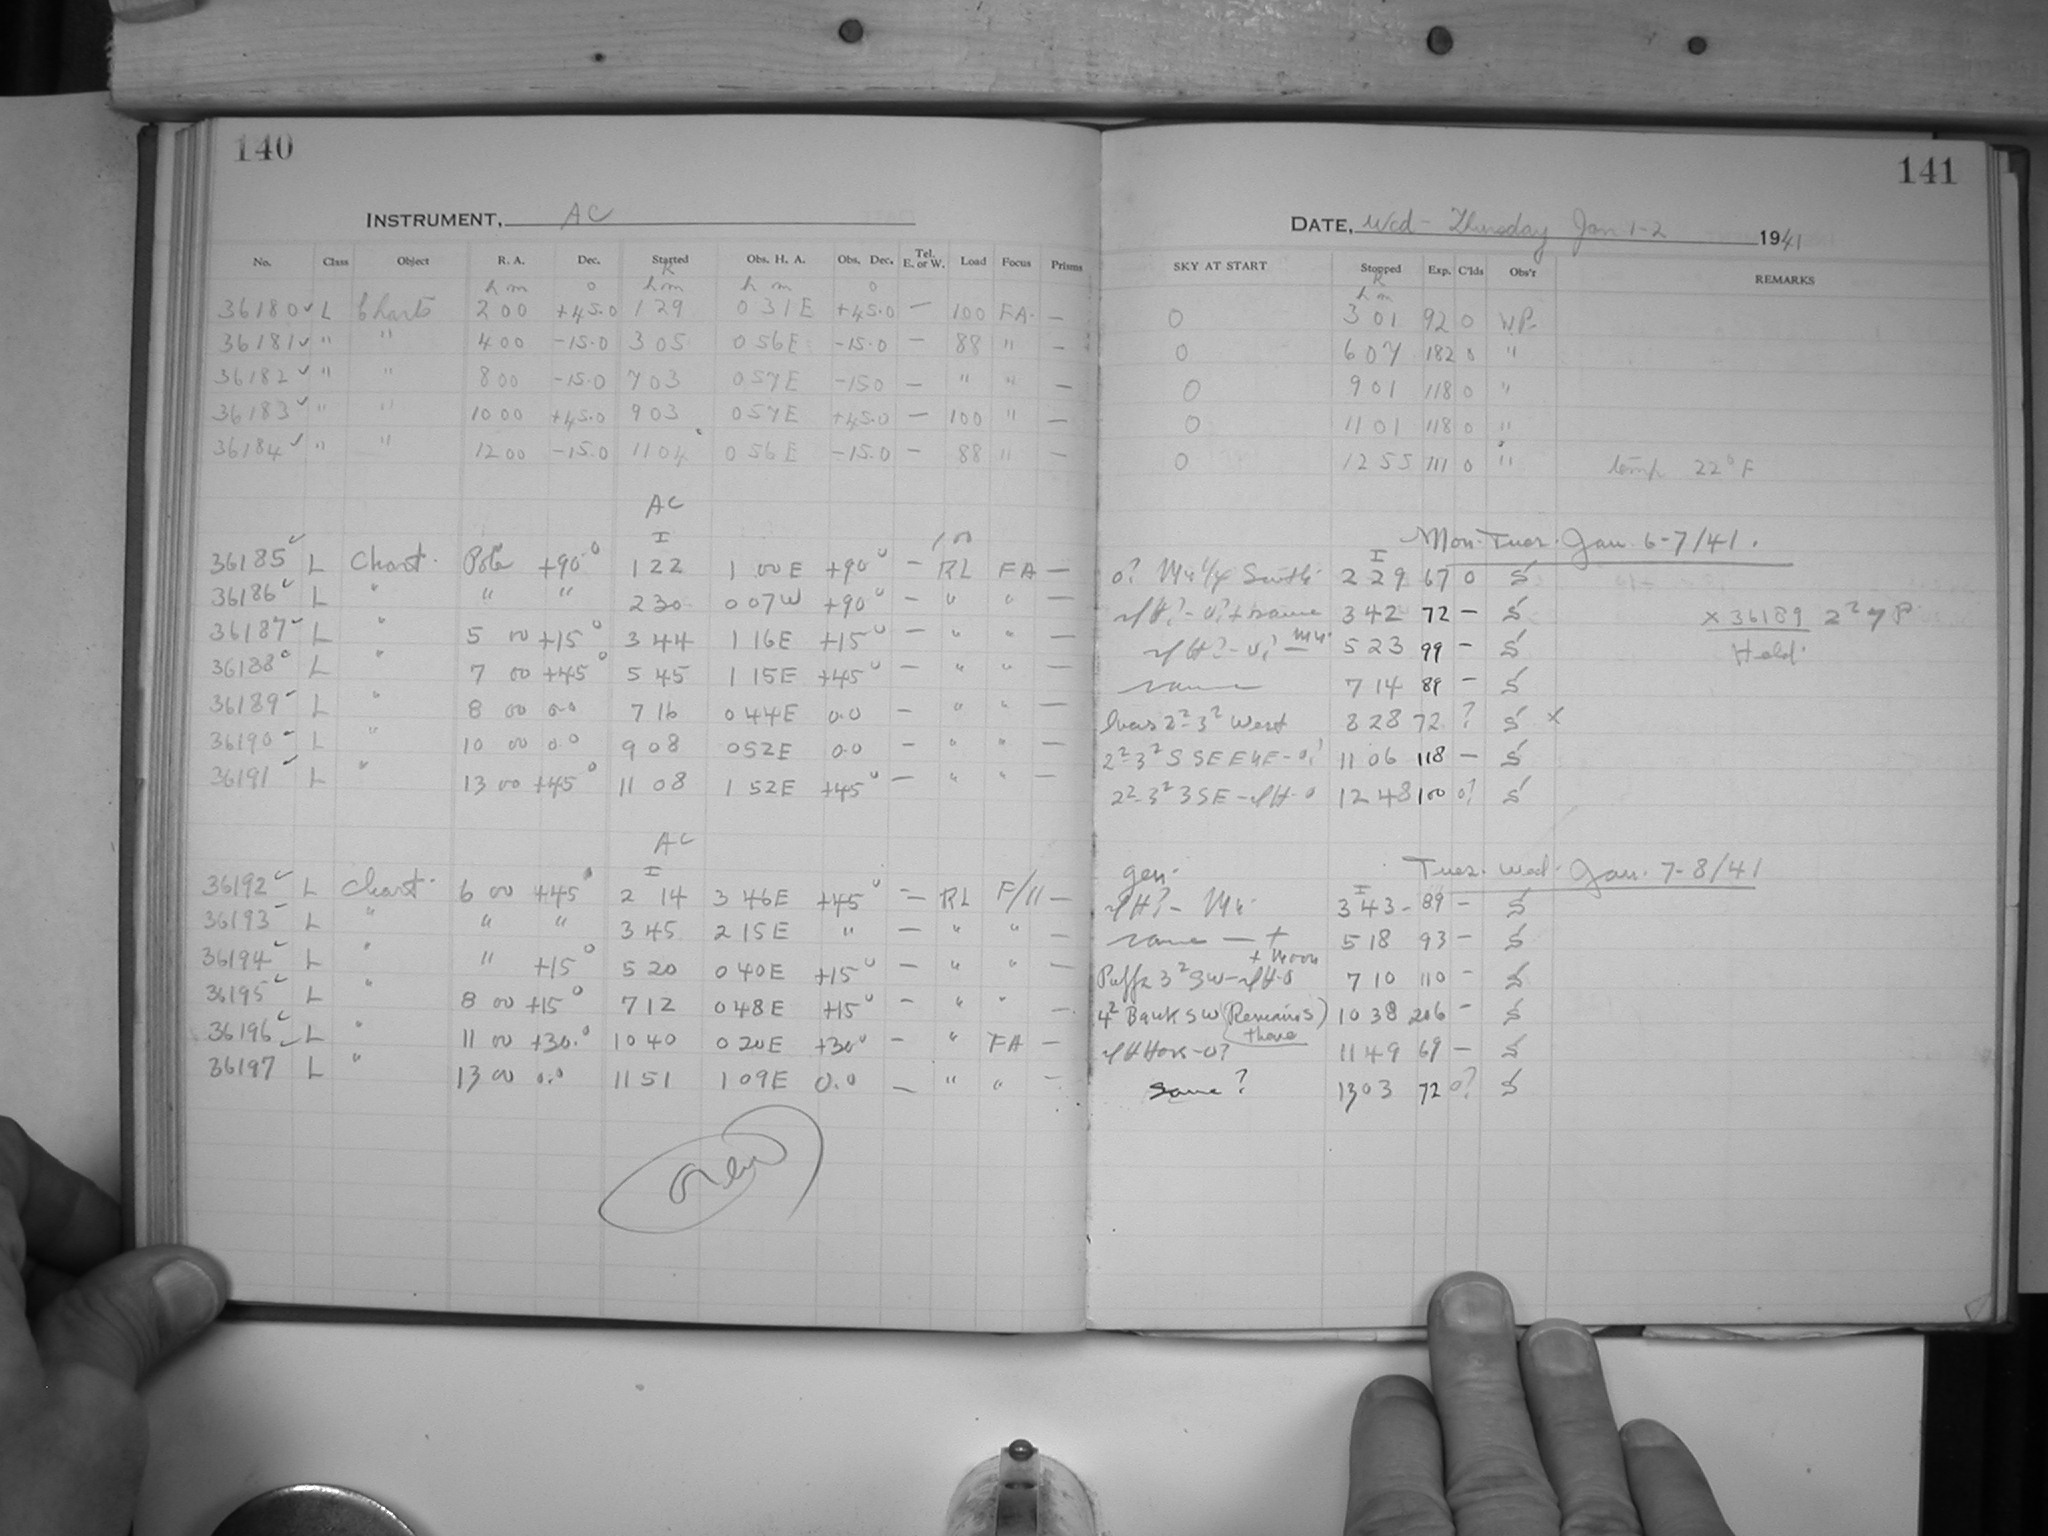 140
INSTRUMENT, AC
No. Class Object R. A. Dec. Started Obs. H. A. Obs. Dec. Tel. E. or W. Load Focus Prisms
h m o R h m h m o
36180 ✓ L Charts 2 00 +45.0 1 29 0 31E +45.0 — 100 FA. —
36181 ✓ " " 4 00 -15.0 3 05 0 56E -15.0 — 88 " —
36182 ✓ " " 8 00 -15.0 7 03 0 57E -15.0 — " " —
36183 ✓ " " 10 00 +45.0 9 03 0 57E +45.0 — 100 " —
36184 ✓ " " 12 00 -15.0 11 04 0 56E -15.0 — 88 " —
AC
I 100
36185 ✓ L Chart. Pole +90° 1 22 1 00E +90° — RL FA —
36186 ✓ L " " " 2 30 0 07W +90° — " " —
36187 ✓ L " 5 00 +15° 3 44 1 16E +15° — " " —
36188 L " 7 00 +45° 5 45 1 15E +45° — " " —
36189 ✓ L " 8 00 0.0 7 16 0 44E 0.0 — " " —
36190 ✓ L " 10 00 0.0 9 08 0 52E 0.0 — " " —
36191 ✓ L " 13 00 +45° 11 08 1 52E +45° — " " —
AC
I
36192 ✓ L Chart. 6 00 +45° 2 14 3 46E +45° — RL F/11 —
36193 ✓ L " " " 3 45 2 15E " — " " —
36194 ✓ L " " +15° 5 20 0 40E +15° — " " —
36195 ✓ L " 8 00 +15° 7 12 0 48E +15° — " " —
36196 ✓ L " 11 00 +30.° 10 40 0 20E +30° — " FA —
36197 ✓ L " 13 00 0.0 11 51 1 09E 0.0 — " " —
141
DATE, Wed - Thursday Jan 1-2 1941
SKY AT START Stopped Exp. C'lds Obs'r REMARKS
R h m
0 3 01 92 0 W.P.
0 6 07 182 0 "
0 9 01 118 0 "
0 11 01 118 0 "
0 12 55 111 0 " temp 22° F
Mon. Tues. Jan. 6-7/41.
I
0? 2 29 67 0 S
3 42 72 — S x 36189 2² 7 P
5 23 99 — S Hold.
same 7 14 89 — S
2²-3² West 8 28 72 ? S x
2²-3² S SE E 11 06 118 — S
2²-3² SE 12 48 100 0? S
gen. Tues. Wed. Jan. 7-8/41
I
3 43 - 89 — S
same — + 5 18 93 — S
+ Moon
Puffs 3² SW 7 10 110 — S
4² Bank SW (Remains) 10 38 206 — S
there
11 49 69 — S
Same? 13 03 72 0? S